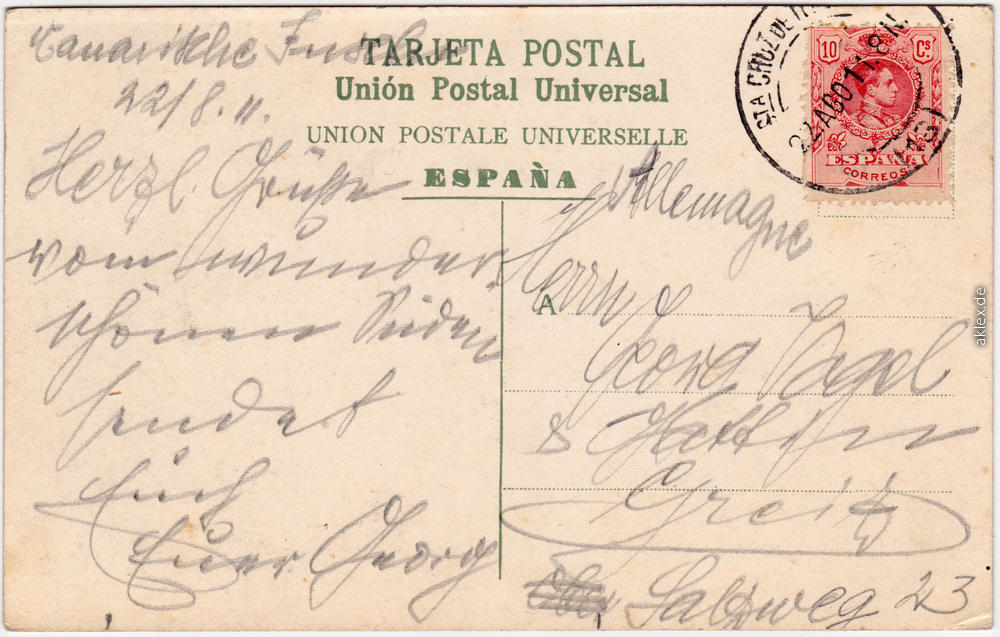 TARJETA POSTAL
Unión Postal Universal
UNION POSTALE UNIVERSELLE
ESPAÑA
Canarische Inseln
22/8. 11.
Herzl. Grüße
vom wunder
schönen Süden
sendet
Euch
Euer Georg
10 Cs.
ESPAÑA
CORREOS
STA CRUZ DE
22 AGO 11. 8 N.
Allemagne
A
Herrn
Georg Vogel
&
Greitz
Salzweg 23
aklex.de